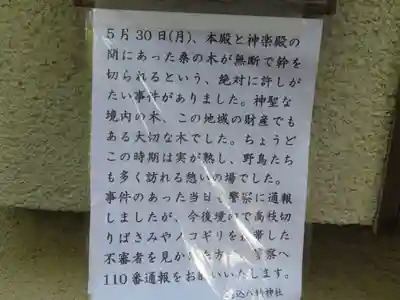 5月30日(月)、本殿と神楽殿の
間にあった桑の木が無断で幹を
切られるという、絶対に許しが
たい事件がありました。神聖な
境内の木、この地域の財産でも
ある大切な木でした。ちょうど
この時期は実が熟し、野鳥たち
も多く訪れる憩いの場でした。
事件のあった当日も警察に通報
しましたが、今後境内で高枝切
りばさみやノコギリを携帯した
不審者を見かけた方は 警察へ
110番通報をお願いいたします。
込八幡神社